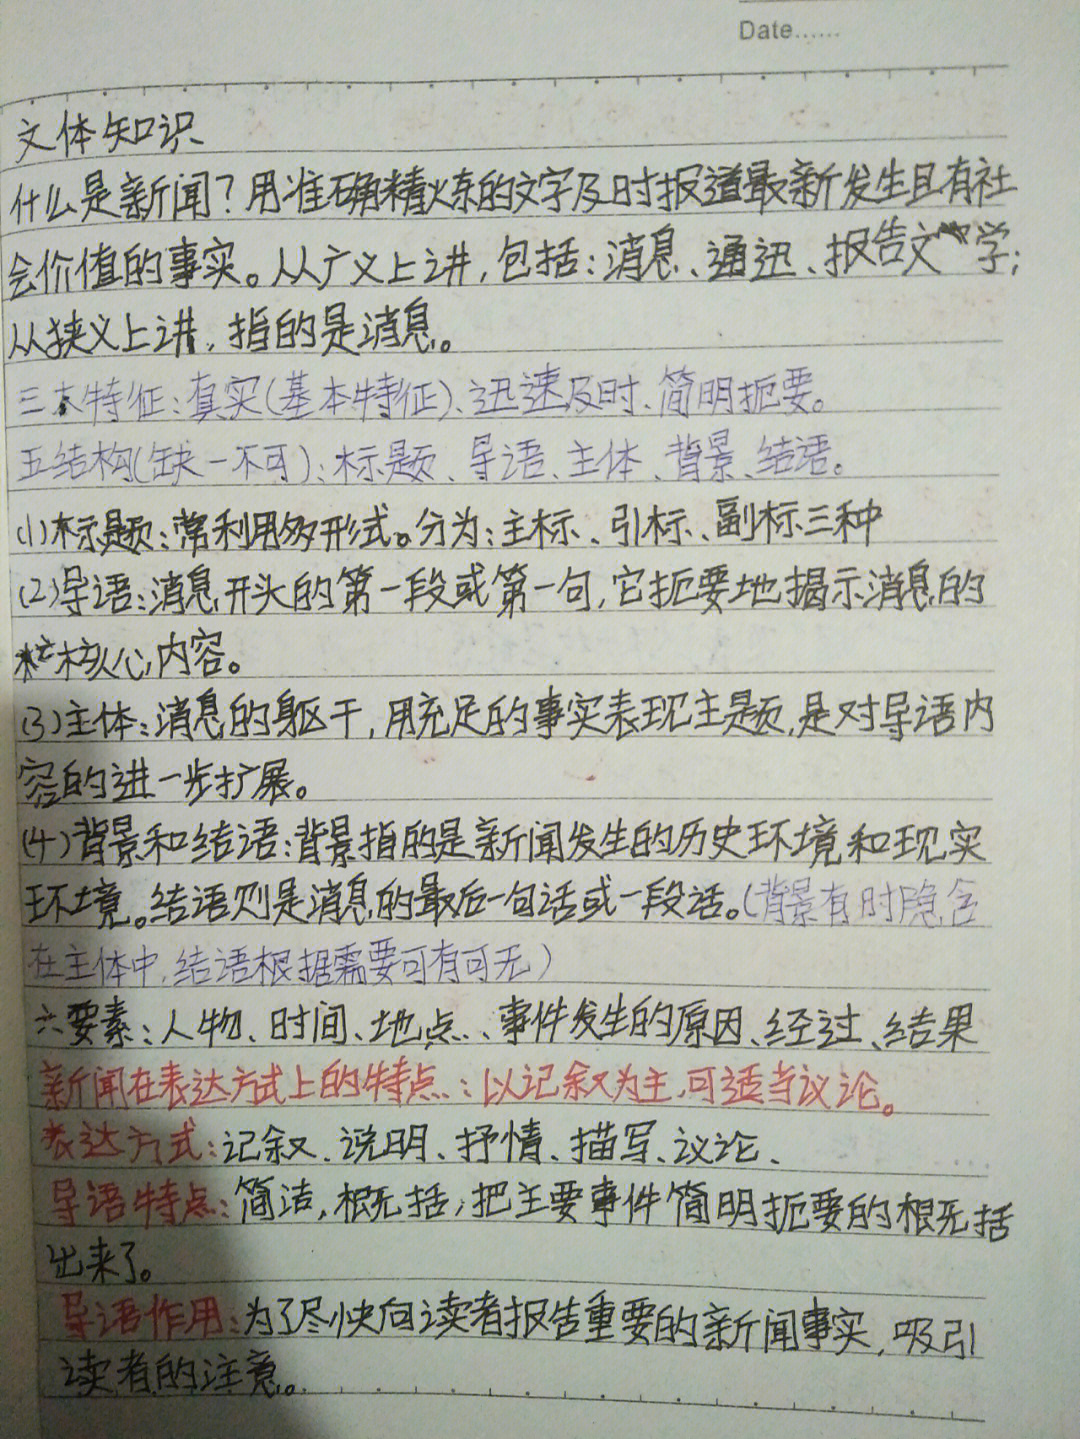 Date......
文体知识
什么是新闻？用准确精炼的文字及时报道最新发生且有社
会价值的事实。从广义上讲，包括：消息、通迅、报告文学；
从狭义上讲，指的是消息。
三本特征：真实(基本特征)、迅速及时、简明扼要。
五结构(缺一不可)：标题、导语、主体、背景、结语。
(1)标题：常利用多形式。分为：主标、引标、副标三种
(2)导语：消息开头的第一段或第一句，它扼要地揭示消息的
核心内容。
(3)主体：消息的躯干，用充足的事实表现主题，是对导语内
容的进一步扩展。
(4)背景和结语：背景指的是新闻发生的历史环境和现实
环境。结语则是消息的最后一句话或一段话。(背景有时隐含
在主体中，结语根据需要可有可无)
六要素：人物、时间、地点、事件发生的原因、经过、结果
新闻在表达方式上的特点：以记叙为主，可适当议论。
表达方式：记叙、说明、抒情、描写、议论、
导语特点：简洁，概括，把主要事件简明扼要的概括
出来了。
导语作用：为了尽快向读者报告重要的新闻事实，吸引
读者的注意。